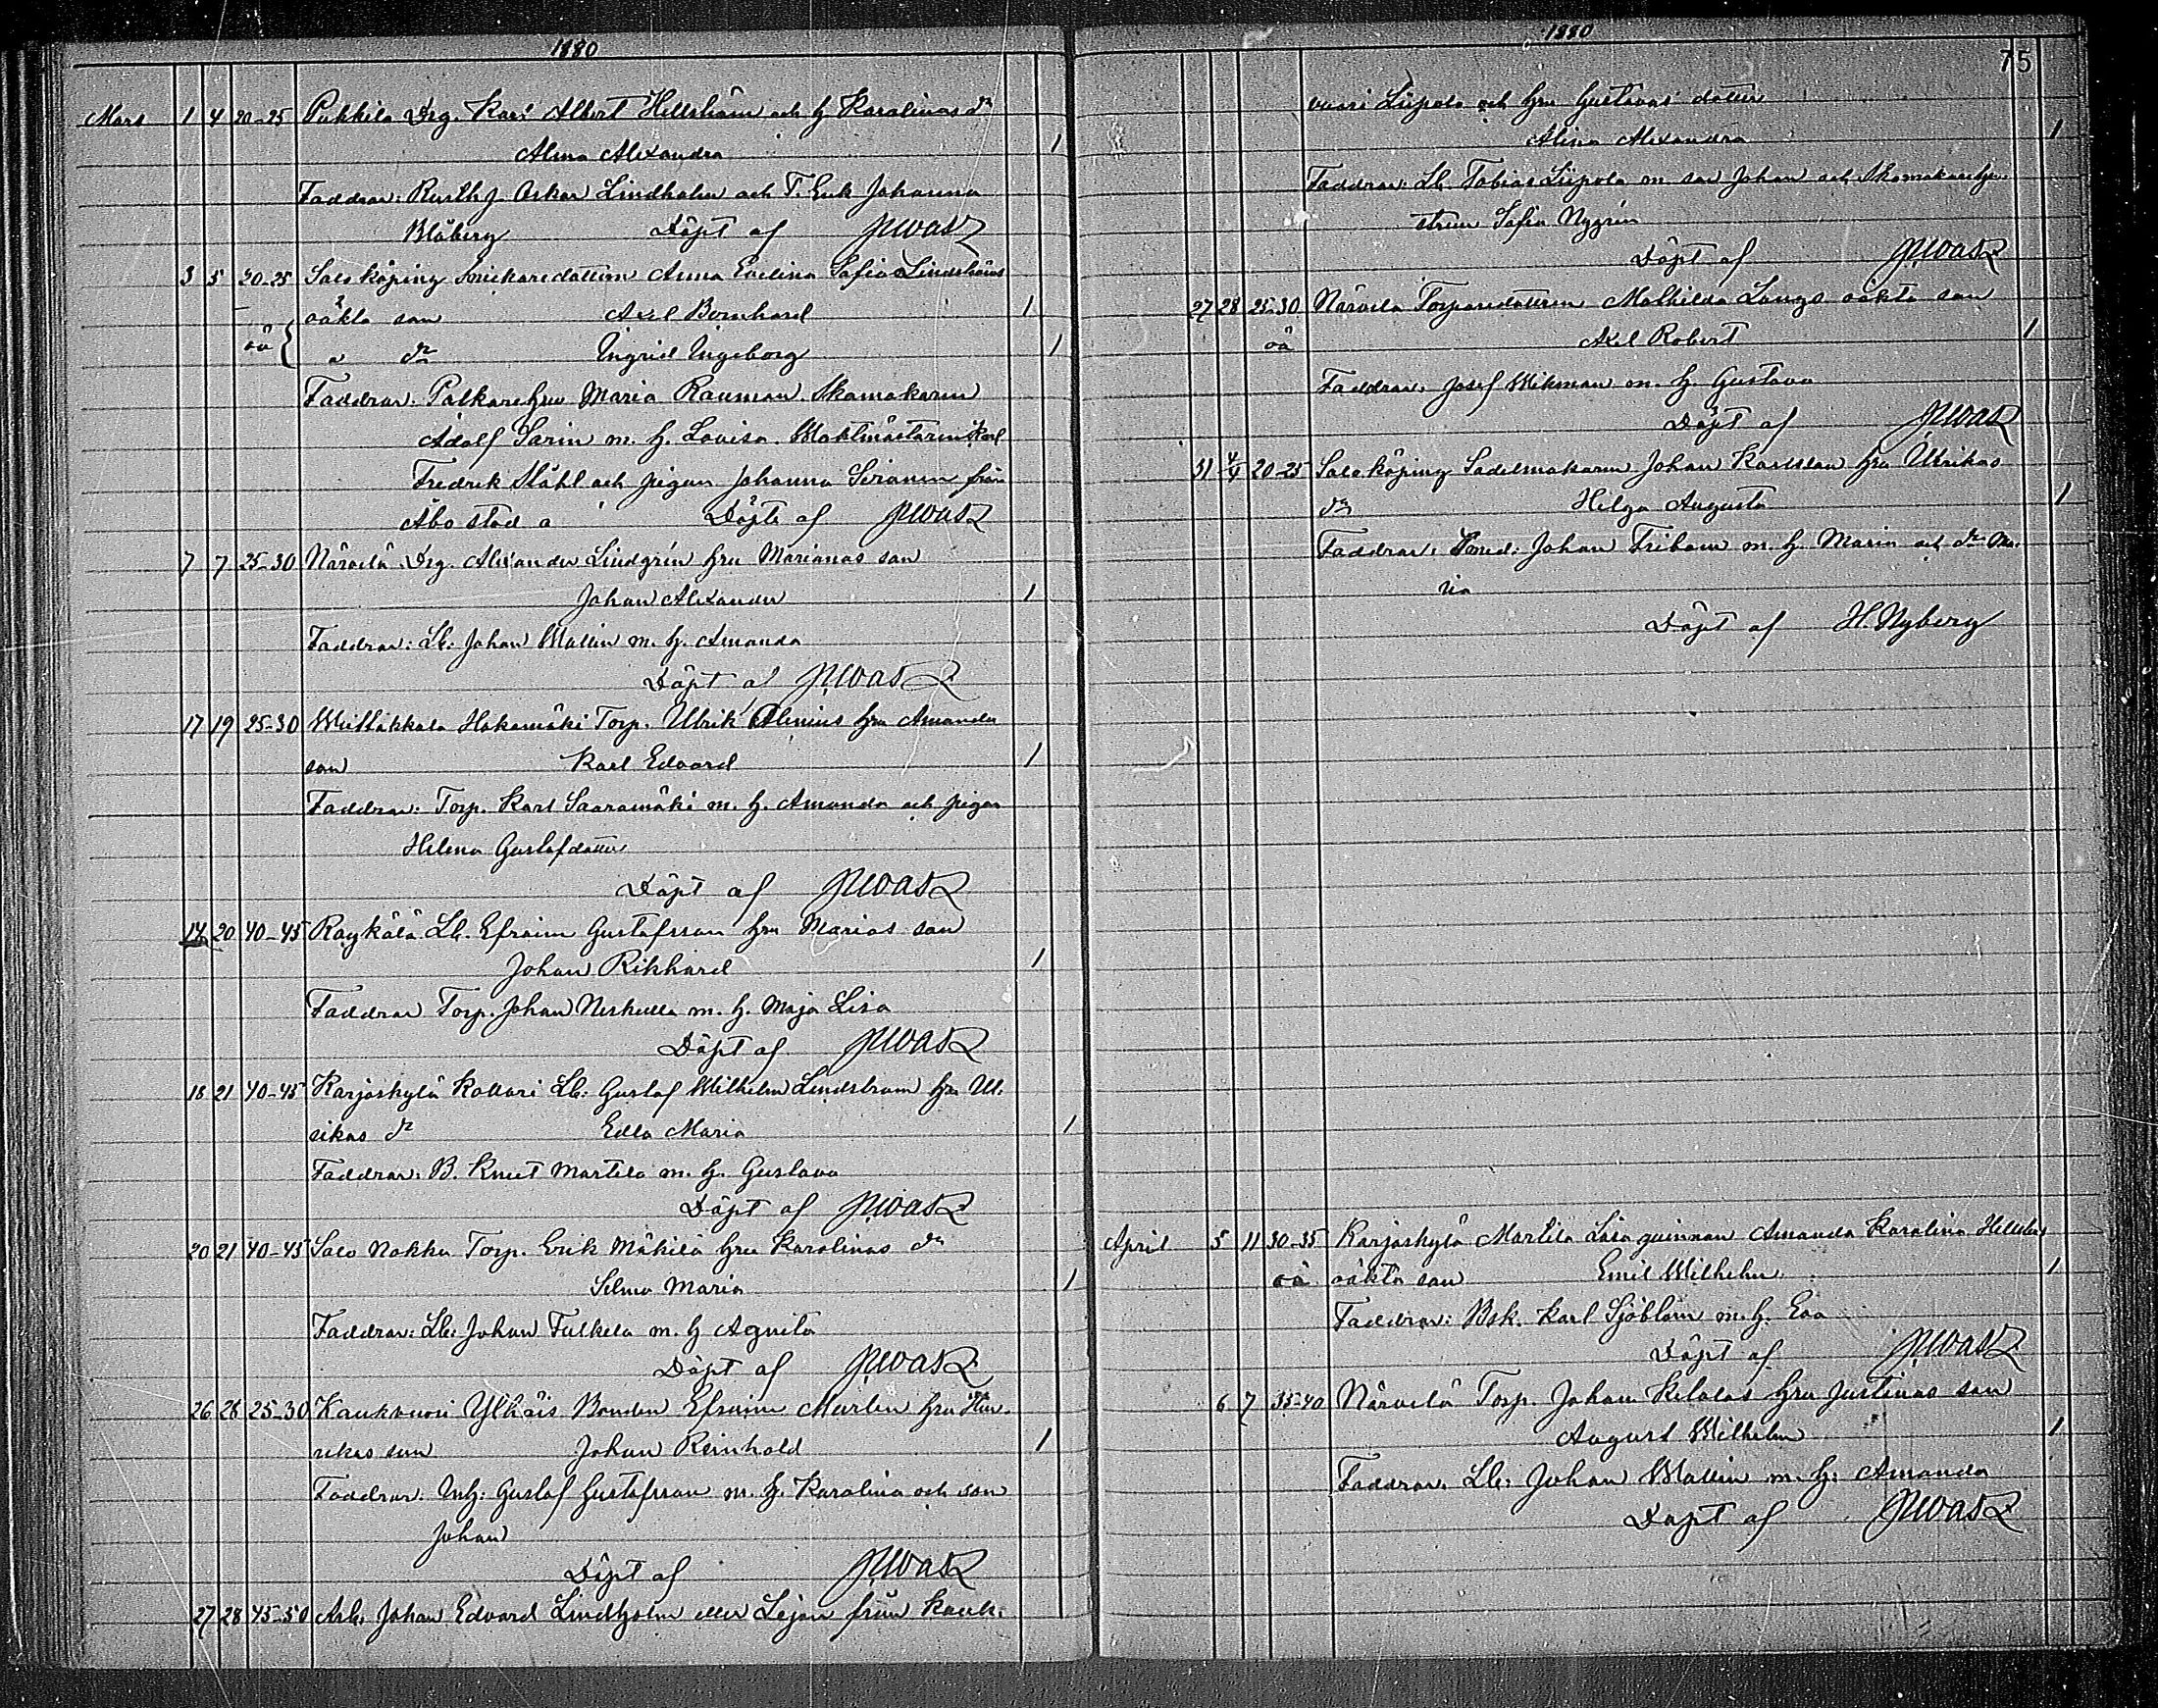 1880
Mars 1 4 20-25 Pukkila Drg. Karl Albert Hellström och h Karolinas dr
Alma Alexandra 1
Faddrar: Rusth J. Oskar Lindholm och T. Enk Johanna
Blåberg Döpt af
3 5 20-25 Salo köping Snickaredottern Anna Evelina Sofia Lindströms
oä { oäkta son Axel Bernhard 1
" dr Ingrid Ingeborg 1
Faddrar: Maria Rauman. Skomakaren
Adolf Sarin m. h. Lovisa. Waktmästaren Karl
Fredrik Ståhl och pigan Johanna från
Åbo stad Döpte af
7 7 25-30 Närvelä Drg. Alexander Lindgrén hru Marianas son
Johan Alexander 1
Faddrar: Lb. Johan Wallin m. h. Amanda
Döpt af
17 19 25-30 Hakamäki Torp. Ulrik Alenius hru Amanda
son Karl Edvard 1
Faddrar: Torp. Karl Saaramäki m. h. Amanda och pigan
Helena Gustafdotter
Döpt af
14 20 40-45 Lb. Efraim Gustafsson hru Marias son
Johan Rikhard 1
Faddrar Torp. Johan m. h. Maja Lisa
Döpt af
18 21 40-45 Karjaskylä Kollari Lb: Gustaf Wilhelm Lindstrom hru Ul.
rikas dr Edla Maria 1
Faddrar: B. Knut Martila m. h. Gustava
Döpt af
20 21 40-45 Salo Nokka Torp. Erik Mäkilä hru Karolinas dr
Selma Maria 1
Faddrar: Lb: Johan m. h Agnita
Döpt af
26 28 25-30 Kaukvuori Ylhäis Bonden Efraim Murlin hru Hen-
rikas son Johan Reinhold 1
Faddrar. Inh: Gustaf Gustafsson m. h. Karolina och son
Johan
Döpt af
27 28 45-50 Arb. Johan Edvard Lindholm eller Lejon från Kauk-
1880
75
vuori Liipola och hru Gustavas dotter
Alina Alexandra 1
Faddrar: Lb. Tobias Liipola m. son Johan och Skomakarehu-
strun Sofia Nygrén
Döpt af
27 28 25-30 Närvelä Torparedottren Mathilda Langs oäkta son
oä Axel Robert 1
Faddrar. Josef Wikman m. h. Gustava
Döpt af
31 4/4 20-25 Salo köping Sadelmakaren Johan Karlsson hru Ulrikas
dr Helga Augusta 1
Faddrar. Smed: Johan Friborn m. h. Maria och dr Ma-
ria
Döpt af H. Nyberg
April 5 11 30-35 Karjaskylä Martila Lösa qvinnan Amanda Karolina
oä. oäkta son Emil Wilhelm 1
Faddrar: Bsk. Karl Sjöblom m. h. Eva
Döpt af
6 7 35-40 Närvelä Torp. Johan hru Justinas son
August Wilhelm 1
Faddrar. Lb: Johan Wallin m. h. Amanda
Döpt af